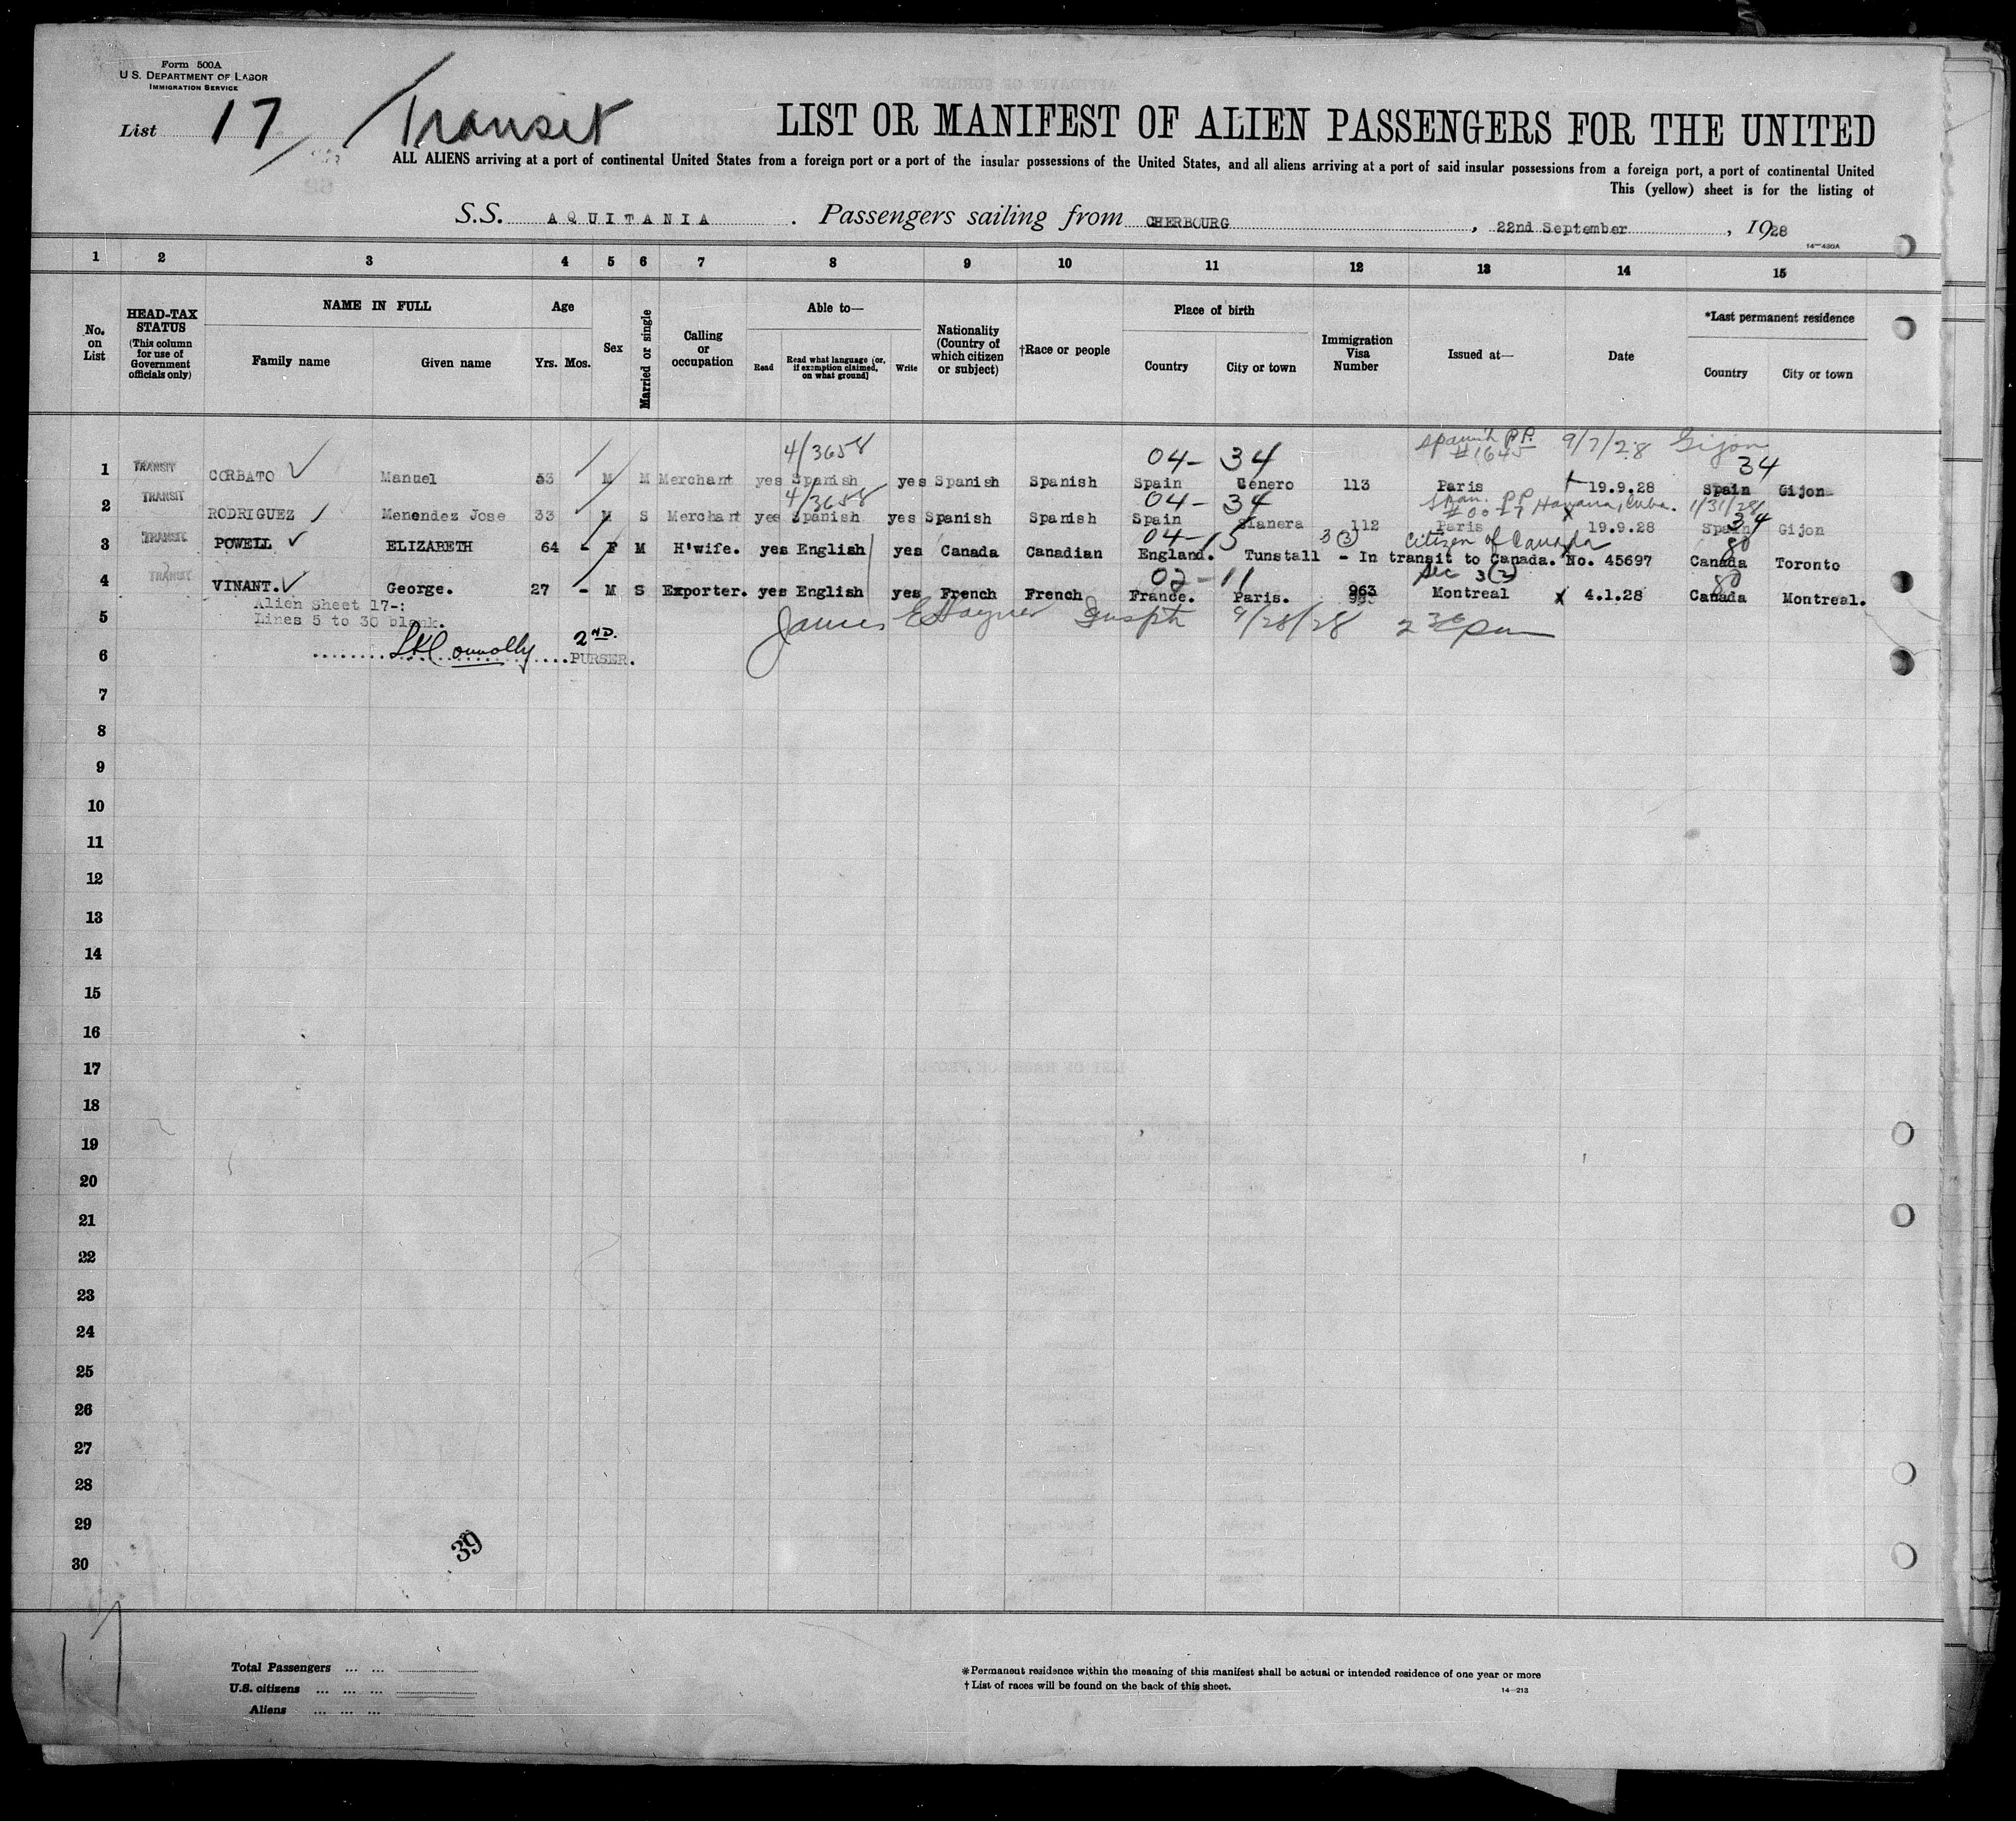 Form 500A
U.S. DEPARTMENT OF LABOR
IMMIGRATION SERVICE
List 17 Transit
LIST OR MANIFEST OF ALIEN PASSENGERS FOR THE UNITED
ALL ALIENS arriving at a port of continental United States from a foreign port or a port of the insular possessions of the United States, and all aliens arriving at a port of said insular possessions from a foreign port, a port of continental United
This (yellow) sheet is for the listing of
S.S. AQUITANIA. Passengers sailing from CHERBOURG, 22nd September, 1928
14-430A
1 2 3 4 5 6 7 8 9 10 11 12 13 14 15
No. on List
HEAD-TAX STATUS (This column for use of Government officials only)
NAME IN FULL
Family name Given name
Age
Yrs. Mos.
Sex
Married or single
Calling or occupation
Able to—
Read Read what language (or, if exemption claimed, on what ground) Write
Nationality (Country of which citizen or subject)
†Race or people
Place of birth
Country City or town
Immigration Visa Number
Issued at—
Date
*Last permanent residence
Country City or town
4/3658 04- 34 Spanish P.P. #1645 9/7/28 Gijon 34
1 TRANSIT CORBATO Manuel 53 M M Merchant yes Spanish yes Spanish Spanish Spain Cenero 113 Paris 19.9.28 Spain Gijon
4/3658 04- 34 Span. P.P. Havana, Cuba. 1/31/28 34
2 TRANSIT RODRIGUEZ Menendez Jose 33 M S Merchant yes Spanish yes Spanish Spanish Spain 112 Paris 19.9.28 Spain Gijon
04-15 3(3) Citizen of Canada 80
3 TRANSIT POWELL ELIZABETH 64 - F M H'wife. yes English yes Canada Canadian England. Tunstall - In transit to Canada. No. 45697 Canada Toronto
02-11 Sec 3(2) 80
4 TRANSIT VINANT. George. 27 - M S Exporter. yes English yes French French France. Paris. 963 Montreal x 4.1.28 Canada Montreal.
Alien Sheet 17-:
5 Lines 5 to 30 blank. James E Hayner Insptr 9/28/28 2 30 pm
6 Connolly 2ND. PURSER.
7
8
9
10
11
12
13
14
15
16
17
18
19
20
21
22
23
24
25
26
27
28
29
30
39
17
Total Passengers ... ...
U.S. citizens ... ... ...
Aliens ... ... ...
*Permanent residence within the meaning of this manifest shall be actual or intended residence of one year or more
†List of races will be found on the back of this sheet.
14-213